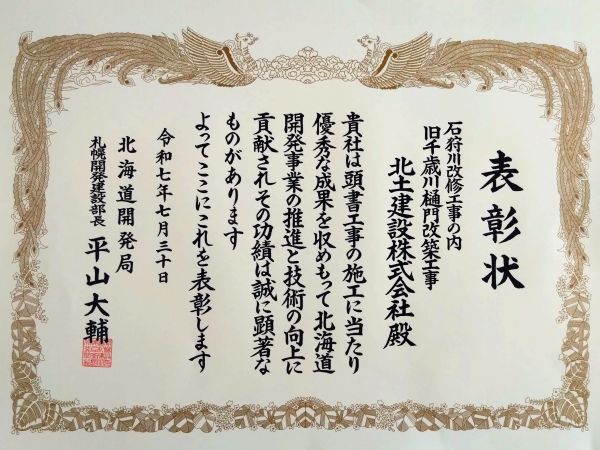 表彰状
石狩川改修工事の内
旧千歳川樋門改築工事
北土建設株式会社殿
貴社は頭書工事の施工に当たり
優秀な成果を収めもって北海道
開発事業の推進と技術の向上に
貢献されその功績は誠に顕著な
ものがあります
よってここにこれを表彰します
令和七年七月三十日
北海道開発局
札幌開発建設部長 平山大輔